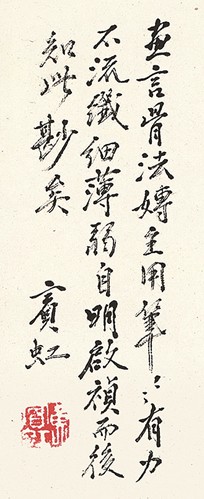 畫言骨法專主用筆筆筆有力
不流纖細薄弱自明啟禎而後
知此尠矣
賓虹